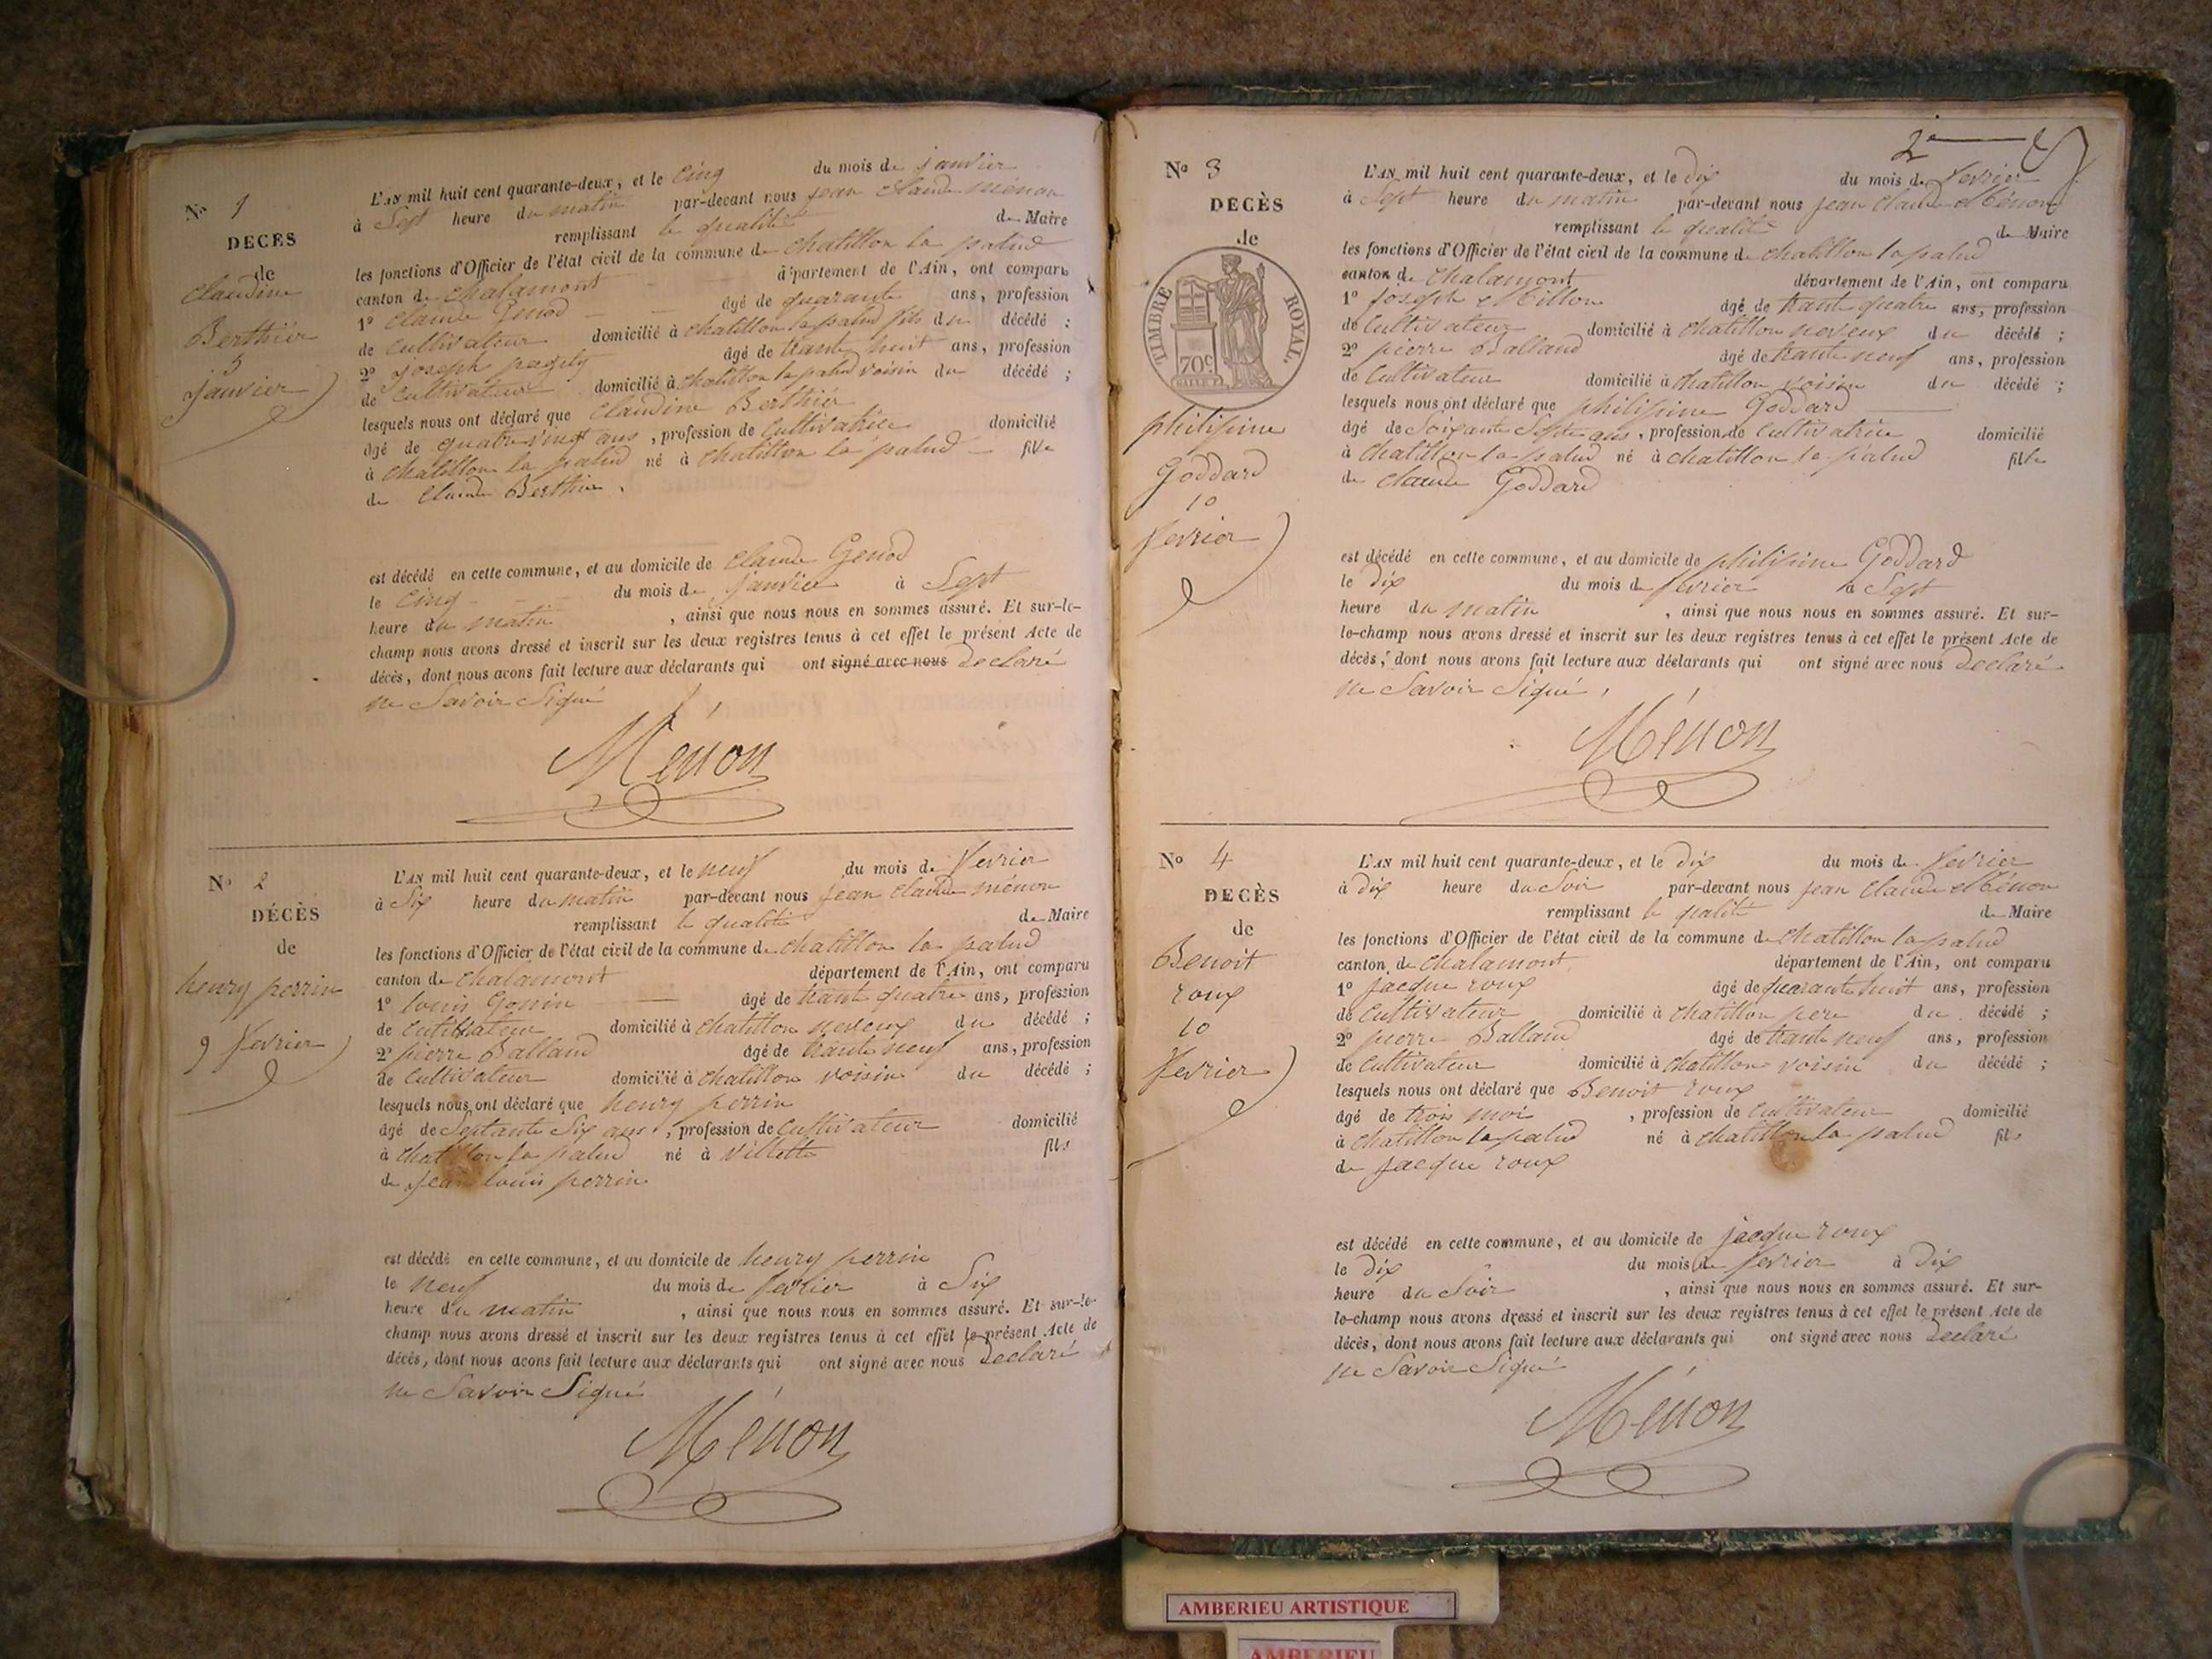 N° 1
DÉCÈS
de
claudine
Berthier
5
janvier
L'AN mil huit cent quarante-deux, et le cinq du mois de janvier
à Sept heure du matin par-devant nous jean claude ménon
remplissant la qualité de Maire
les fonctions d'Officier de l'état civil de la commune de chatillon la palud
canton de chalamont département de l'Ain, ont comparu
1° claude Genod âgé de quarante ans, profession
de cultivateur domicilié à chatillon la palud fils du décédé ;
2° joseph âgé de trante huit ans, profession
de cultivateur domicilié à chatillon la palud voisin du décédé ;
lesquels nous ont déclaré que claudine Berthier
âgé de quatre vingt ans, profession de cultivatrice domicilié
à chatillon la palud né à chatillon la palud fille
de claude Berthier.
est décédé en cette commune, et au domicile de claude Genod
le cinq du mois de janvier à Sept
heure du matin, ainsi que nous nous en sommes assuré. Et sur-le-
champ nous avons dressé et inscrit sur les deux registres tenus à cet effet le présent Acte de
décès, dont nous avons fait lecture aux déclarants qui ont signé avec nous Declaré
ne Savoir Signé
Ménon
N° 2
DÉCÈS
de
henry perrin
9 fevrier
L'AN mil huit cent quarante-deux, et le neuf du mois de fevrier
à Six heure du matin par-devant nous jean claude ménon
remplissant la qualité de Maire
les fonctions d'Officier de l'état civil de la commune de chatillon la palud
canton de chalamont département de l'Ain, ont comparu
1° louis Gonin âgé de trant quatre ans, profession
de cultivateur domicilié à chatillon neveux du décédé ;
2° pierre Balland âgé de trante neuf ans, profession
de cultivateur domicilié à chatillon voisin du décédé ;
lesquels nous ont déclaré que henry perrin
âgé de Septante Six ans, profession de cultivateur domicilié
à chatillon la palud né à villette fils
de jean louis perrin
est décédé en cette commune, et au domicile de henry perrin
le neuf du mois de fevrier à Six
heure du matin, ainsi que nous nous en sommes assuré. Et sur-le-
champ nous avons dressé et inscrit sur les deux registres tenus à cet effet le présent Acte de
décès, dont nous avons fait lecture aux déclarants qui ont signé avec nous Declaré
ne Savoir Signé
Ménon
2e
N° 3
DÉCÈS
de
TIMBRE ROYAL.
70c
philipine
Goddard
10
fevrier
L'AN mil huit cent quarante-deux, et le dix du mois de fevrier
à Sept heure du matin par-devant nous jean claude Ménon
remplissant la qualité de Maire
les fonctions d'Officier de l'état civil de la commune de chatillon la palud
canton de chalamont département de l'Ain, ont comparu
1° joseph Millon âgé de trant quatre ans, profession
de cultivateur domicilié à chatillon neveux du décédé ;
2° pierre Balland âgé de trante neuf ans, profession
de cultivateur domicilié à chatillon voisin du décédé ;
lesquels nous ont déclaré que philipine Goddard
âgé de Soixante Septe ans, profession de cultivatrice domicilié
à chatillon la palud né à chatillon la palud fille
de claude Goddard
est décédé en cette commune, et au domicile de philipine Goddard
le dix du mois de fevrier à Sept
heure du matin, ainsi que nous nous en sommes assuré. Et sur-
le-champ nous avons dressé et inscrit sur les deux registres tenus à cet effet le présent Acte de
décès, dont nous avons fait lecture aux déclarants qui ont signé avec nous Declaré
ne Savoir Signé,
Ménon
N° 4
DÉCÈS
de
Benoit
roux
10
fevrier
L'AN mil huit cent quarante-deux, et le dix du mois de fevrier
à dix heure du Soir par-devant nous jean claude Ménon
remplissant la qualité de Maire
les fonctions d'Officier de l'état civil de la commune de chatillon la palud
canton de chalamont département de l'Ain, ont comparu
1° jacque roux âgé de quarante huit ans, profession
de cultivateur domicilié à chatillon pere du décédé ;
2° pierre Balland âgé de trante neuf ans, profession
de cultivateur domicilié à chatillon voisin du décédé ;
lesquels nous ont déclaré que Benoit roux
âgé de trois moi, profession de cultivateur domicilié
à chatillon la palud né à chatillon la palud fils
de jacque roux
est décédé en cette commune, et au domicile de jacque roux
le dix du mois de fevrier à dix
heure du Soir, ainsi que nous nous en sommes assuré. Et sur-
le-champ nous avons dressé et inscrit sur les deux registres tenus à cet effet le présent Acte de
décès, dont nous avons fait lecture aux déclarants qui ont signé avec nous Declaré
ne Savoir Signé
Ménon
AMBERIEU ARTISTIQUE
AMBERIEU